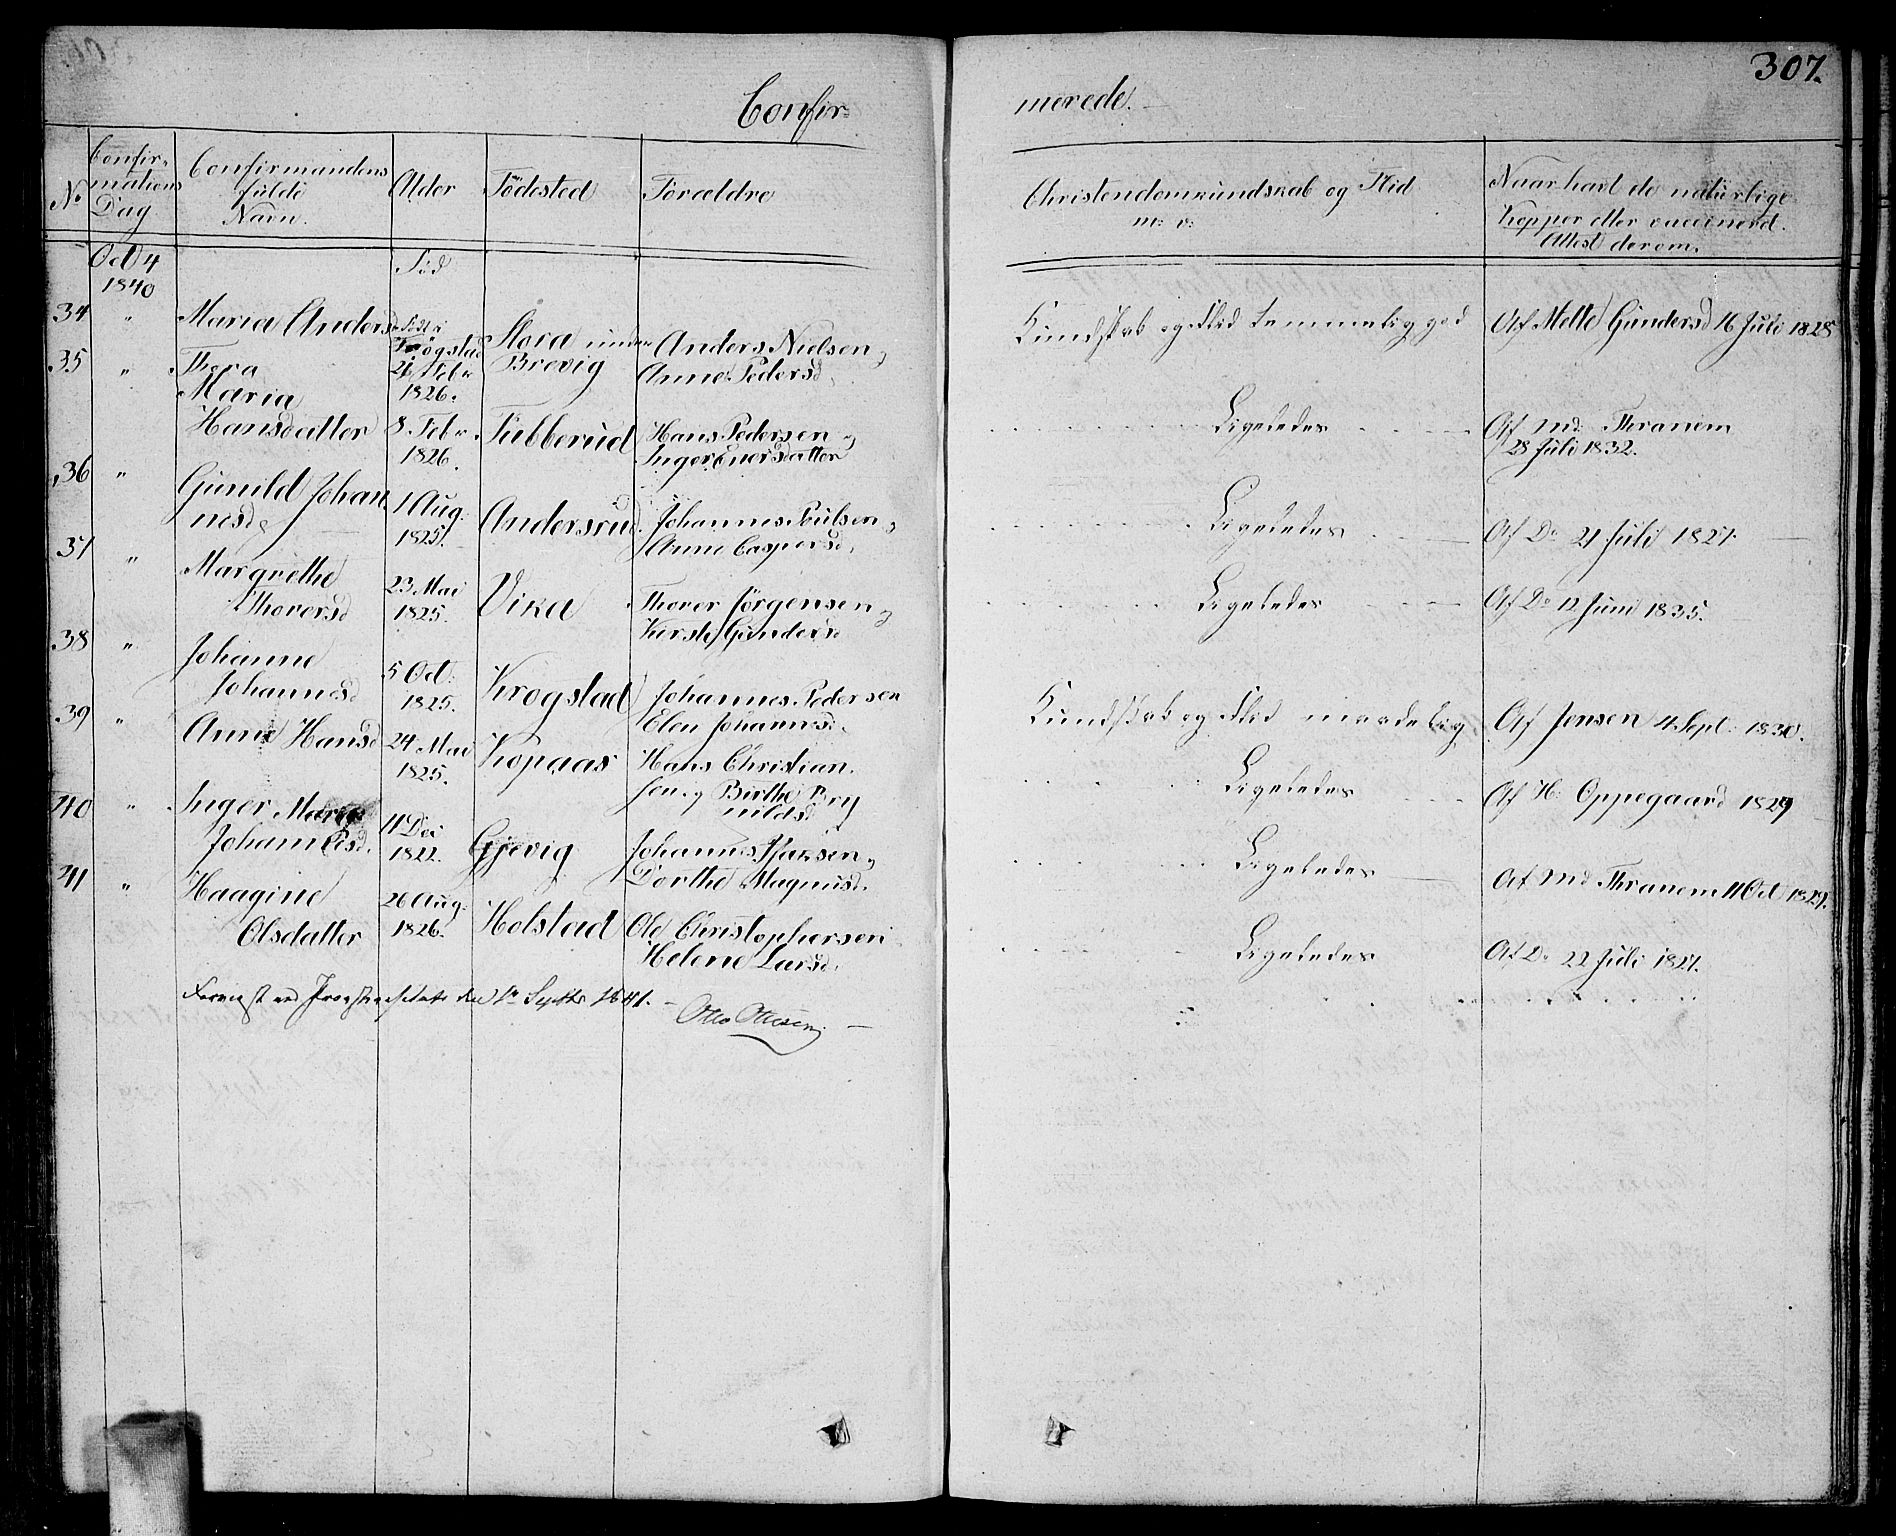 307.
Confir-
merede.
No
Confir-
mations
Dag
Confirmandens
fulde
Navn.
Alder
Födested
Forældre
Christendomskundskab og Flid
m: v:
Naar havt de naturlige
Kopper eller vaccinerd.
Attest derom.
Oct 4
1840
Föd
34 " Maria Andersd
Födt i
Krogstad
21 Febr
1826.
Stora under
Brevig
Anders Nielsen og
Anne Pedersd.
Kundskab og Flid temmelig god
Af Mette Gundersd 16 Juli 1828
35 " Thora
Maria
Hansdatter
8 Febr.
1826.
Tubberud
Hans Pedersen og
Inger Enersdatter
Ligeledes
Af Md: Thranem
28 Juli 1832.
36 " Gunild Johan
nesd
1 Aug:
1825.
Andersrud.
Johannes Poulsen og
Anne Caspersd.
Ligeledes
Af Do 21 Juli 1827.
37 " Margrethe
Thorersd
23 Mai
1825.
Vika
Thorer Jörgensen og
Kirsti Gundersd
Ligeledes
Af Do 12 Juni 1835.
38 " Johanne
Johannesd
5 Oct:
1825.
Krogstad
Johannes Pedersen
Elen Johannesd.
Kundskab og Flid maadelig
Af Jensen 4 Sept: 1830.
39 " Anne Hansd
24 Mai
1825.
Kopaas
Hans Christian
sen og Birthe Bry
nildsd
Ligeledes
Af H: Oppegaard 1829
40 " Inger Maria
Johannesd.
11 Dec
1822.
Gjevig
Johannes Isaksen og
Dorthe Magnusd.
Ligeledes
Af Md Thranem 11 Oct 1827.
41 " Haagine
Olsdatter
26 Aug:
1826.
Holstad
Ole Christophersen
Helene Larsd.
Ligeledes
Af Do 22 Juli 1827.
Forevist ved Provstevisitats den 1ste Septbr 1841.
Otto Ottesen